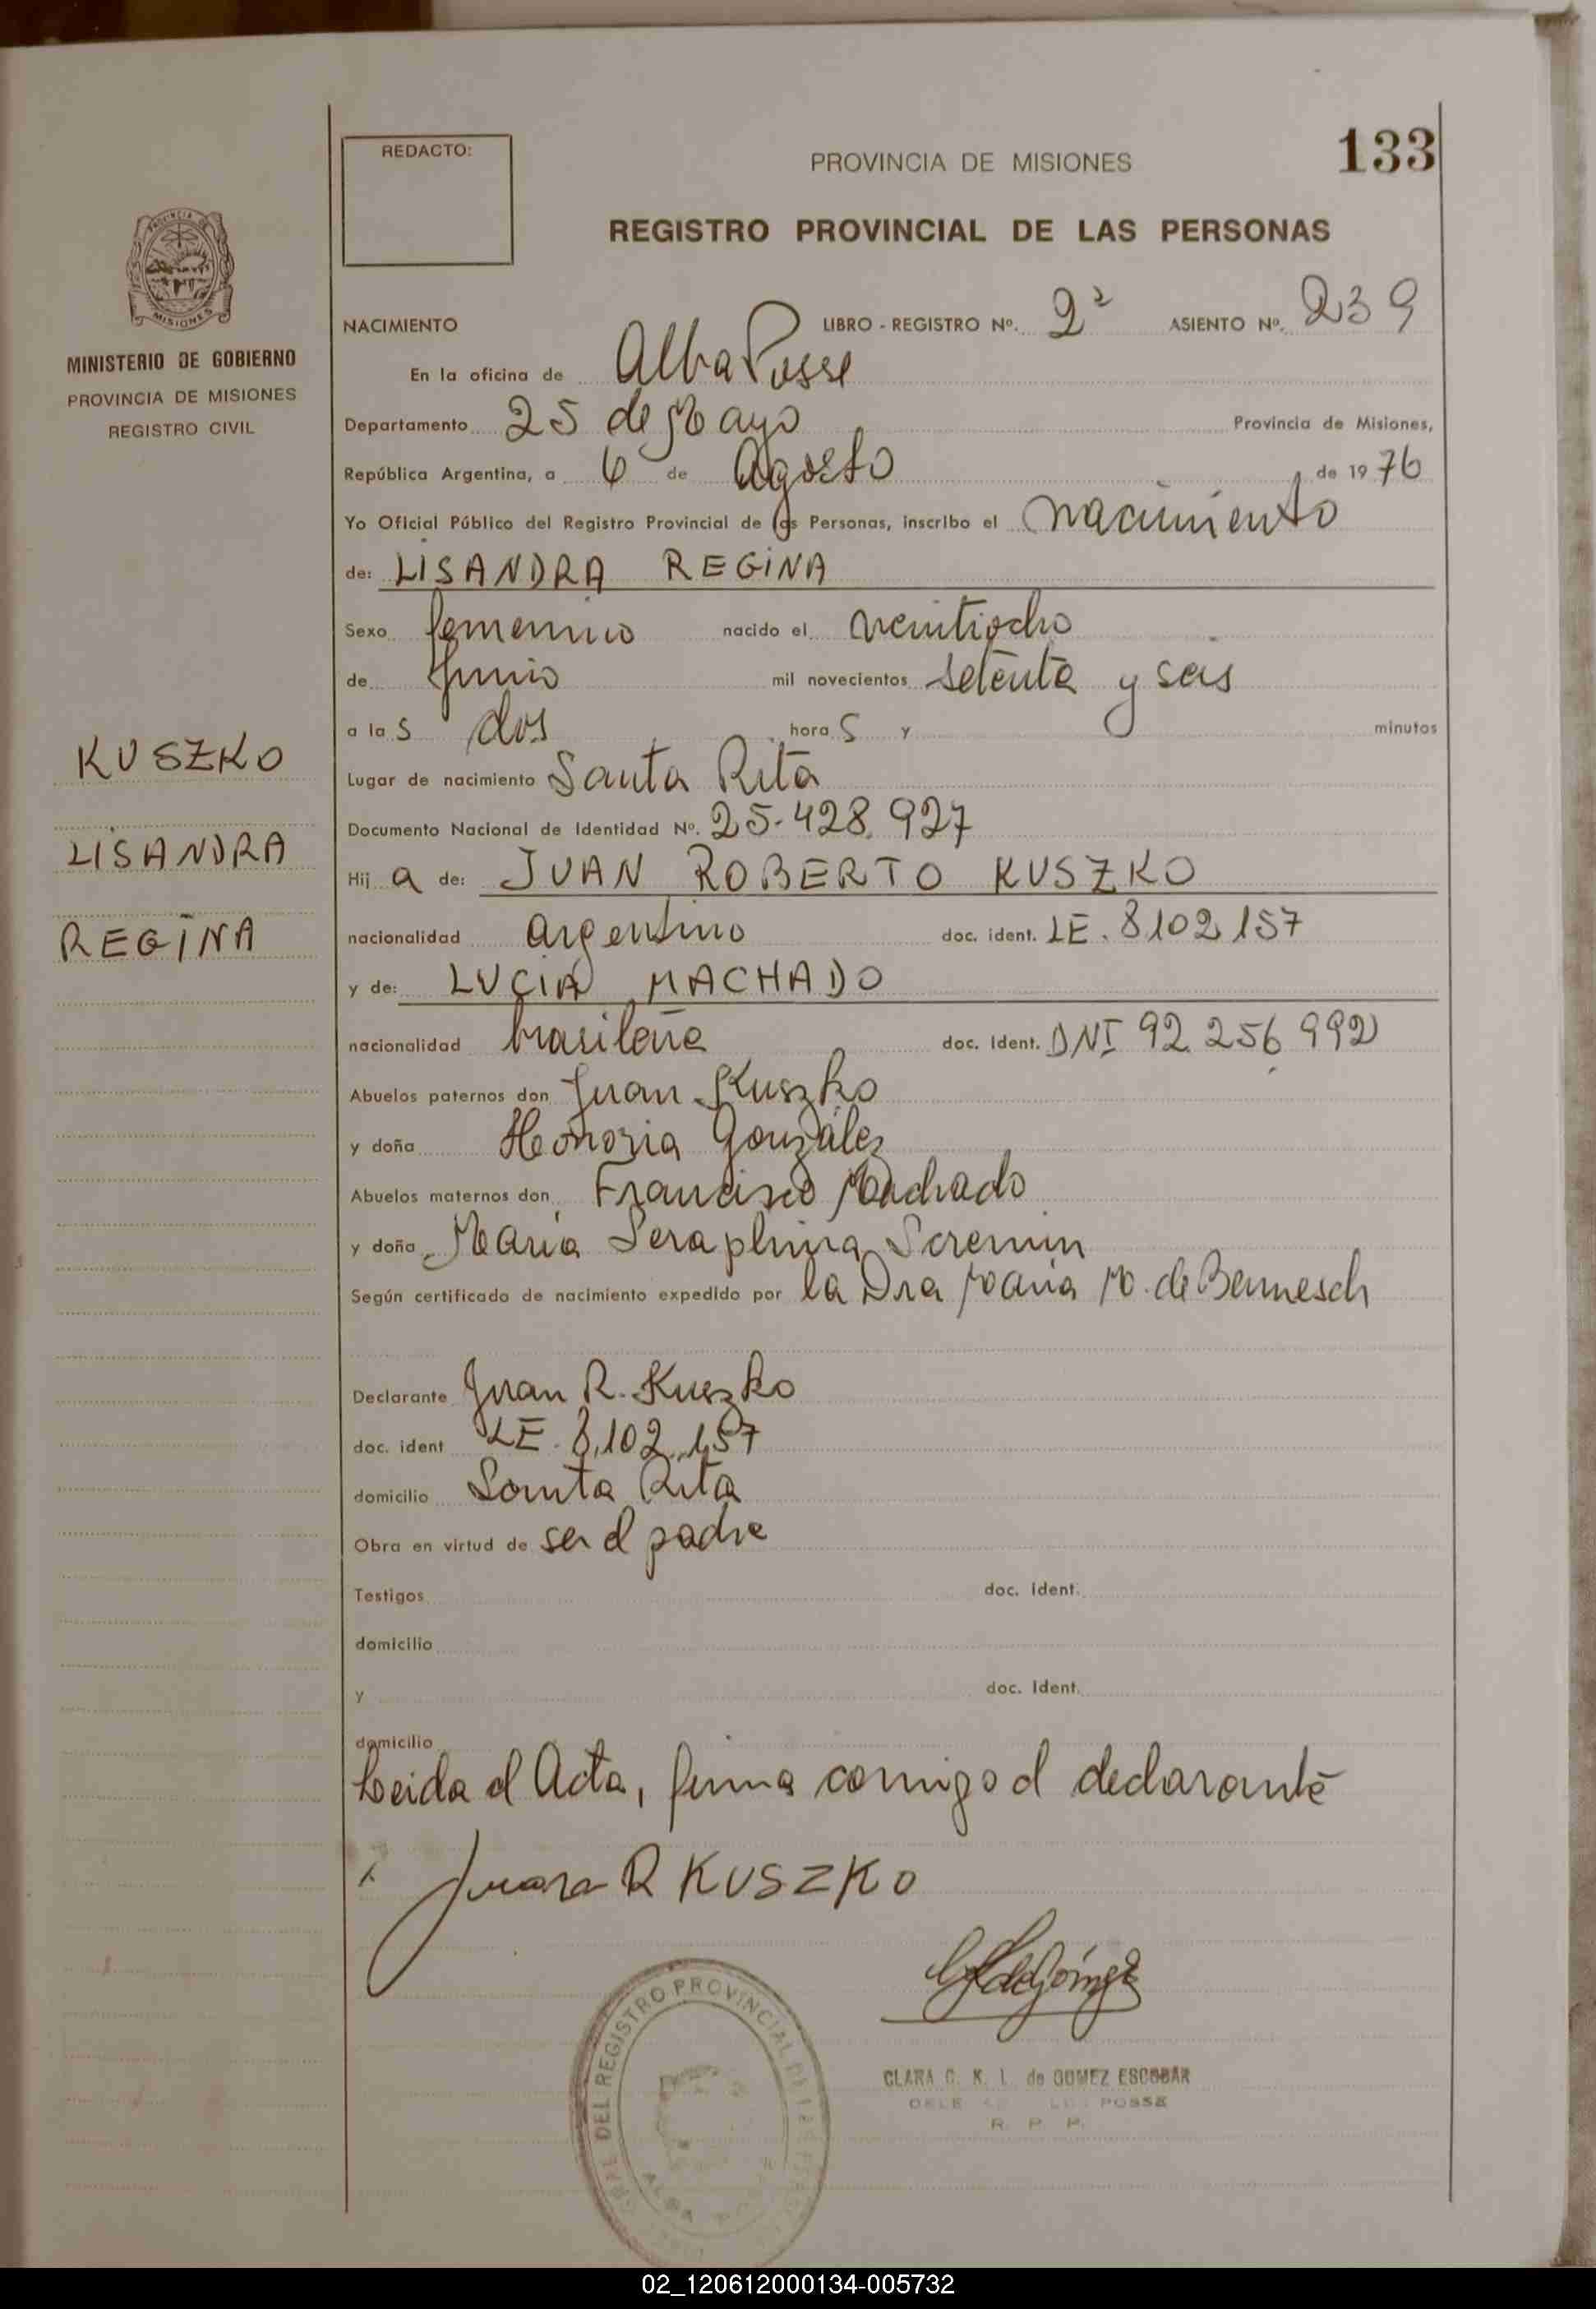 133
REDACTO:
PROVINCIA DE MISIONES
REGISTRO PROVINCIAL DE LAS PERSONAS
MISIONES
MINISTERIO DE GOBIERNO
PROVINCIA DE MISIONES
REGISTRO CIVIL
KUSZKO
LISANDRA
REGINA
NACIMIENTO LIBRO - REGISTRO Nº. 2º ASIENTO Nº. 239
En la oficina de Alba Posse
Departamento 25 de Mayo Provincia de Misiones,
República Argentina, a 6 de Agosto de 1976
Yo Oficial Público del Registro Provincial de las Personas, inscribo el nacimiento
de: LISANDRA REGINA
Sexo femenino nacido el veintiocho
de Junio mil novecientos setenta y seis
a las dos horas y minutos
Lugar de nacimiento Santa Rita
Documento Nacional de Identidad Nº. 25.428.927
Hija de: JUAN ROBERTO KUSZKO
nacionalidad argentino doc. ident. LE. 8.102.157
y de: LUCIA MACHADO
nacionalidad brasileña doc. Ident. DNI 92.256.992
Abuelos paternos don Juan Kuszko
y doña Honoria González
Abuelos maternos don Francisco Machado
y doña María Seraphina Scremin
Según certificado de nacimiento expedido por la Dra María M. de Bennesch
Declarante Juan R. Kuszko
doc. ident LE. 8.102.157
domicilio Santa Rita
Obra en virtud de ser el padre
Testigos doc. Ident.
domicilio
y doc. Ident.
domicilio
Leida el Acta, firma conmigo el declarante
x Juan R KUSZKO
DEL REGISTRO PROVINCIAL DE LAS
ALBA
CLARA C. K. L. de GOMEZ ESCOBAR
POSSE
R. P. P.
02_120612000134-005732